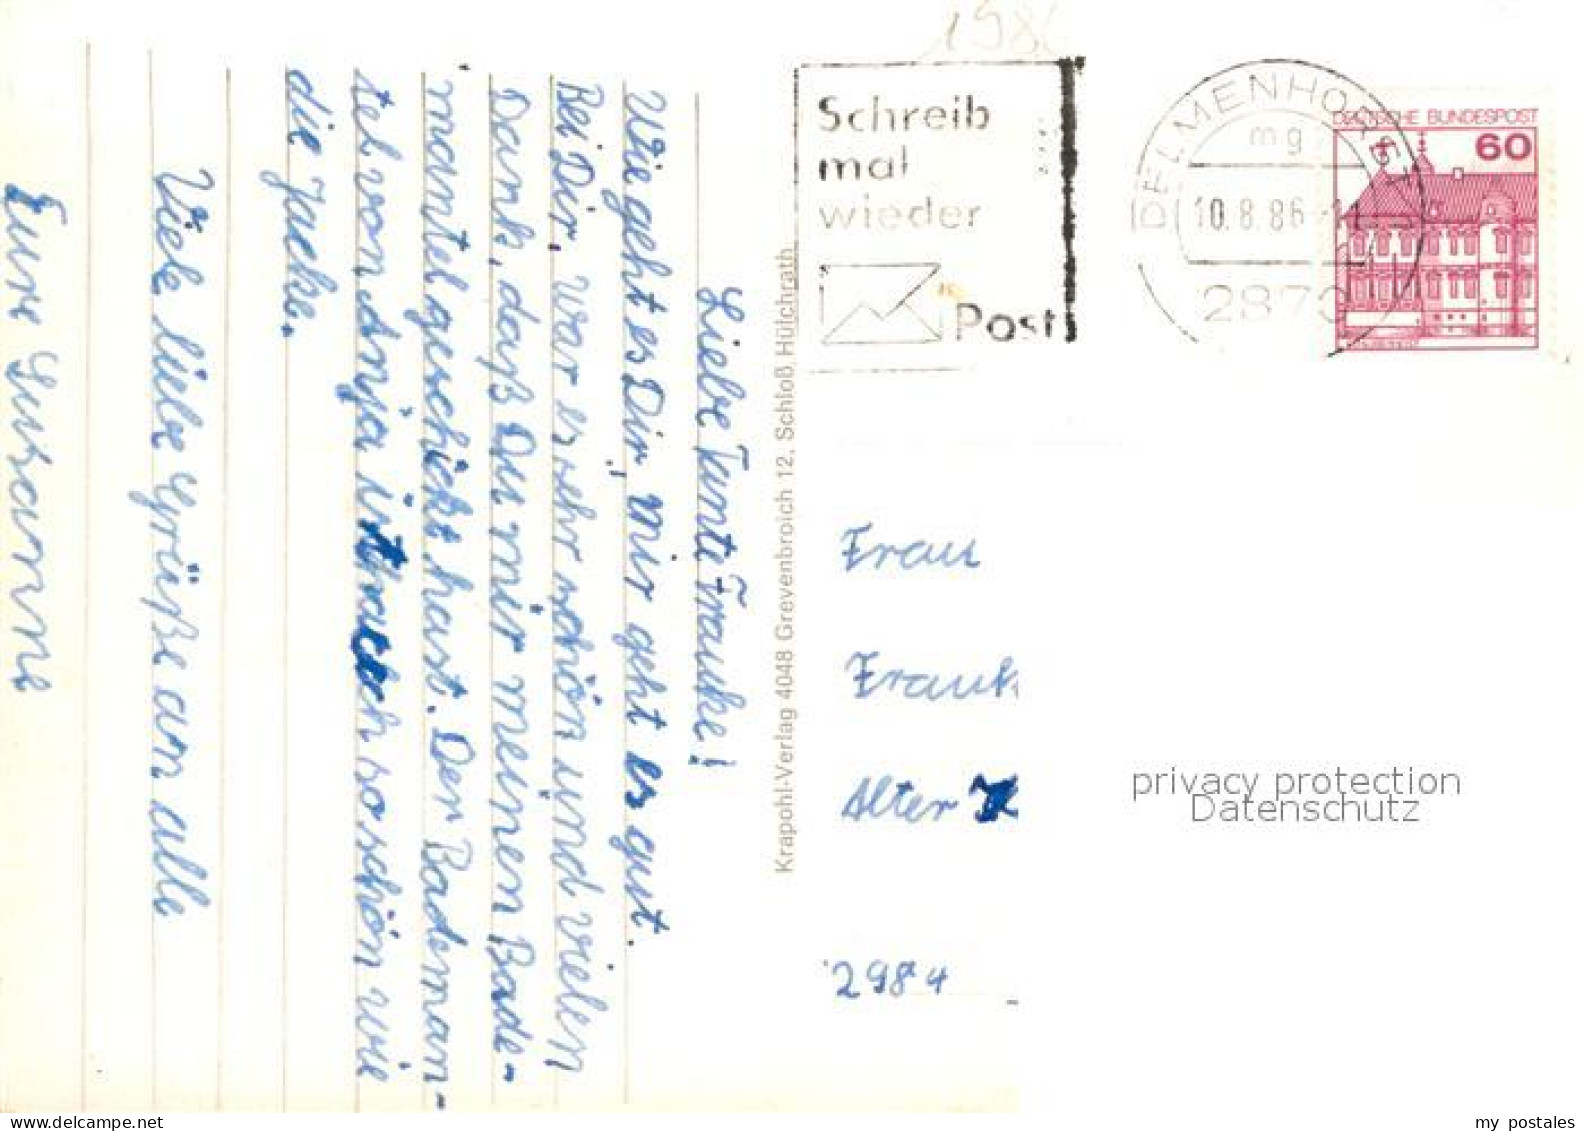 Liebe Tante Frauke!
Wie geht es Dir, mir geht es gut.
Bei Dir, war es sehr schön und vielen
Dank, daß Du mir meinen Bade-
mantel geschickt hast. Der Bademan-
tel von Anja ist auch so schön wie
die Jacke.
Viele liebe Grüße an alle
Eure Susanne
Krapohl-Verlag 4048 Grevenbroich 12, Schloß Hülchrath
Schreib
mal
wieder
Post
DELMENHORST 1
mg
10.8.86
2870
DEUTSCHE BUNDESPOST
60
Frau
Frauk
Alter
2984
privacy protection
Datenschutz
my postales
www.delcampe.net